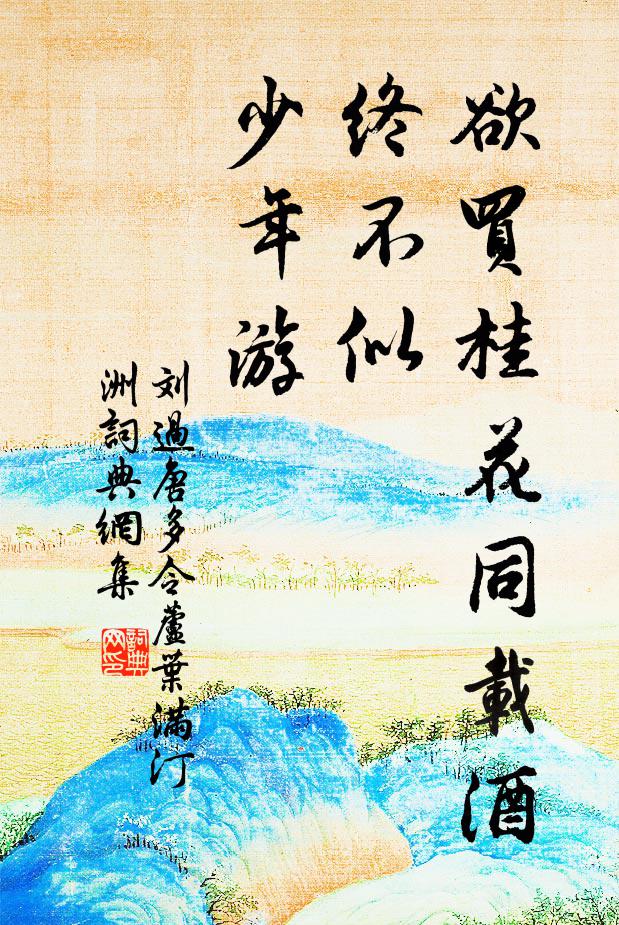 欲買桂花同載酒
終不似
少年游
刘過唐多令蘆葉滿汀
洲詞典網集
詞典
网印